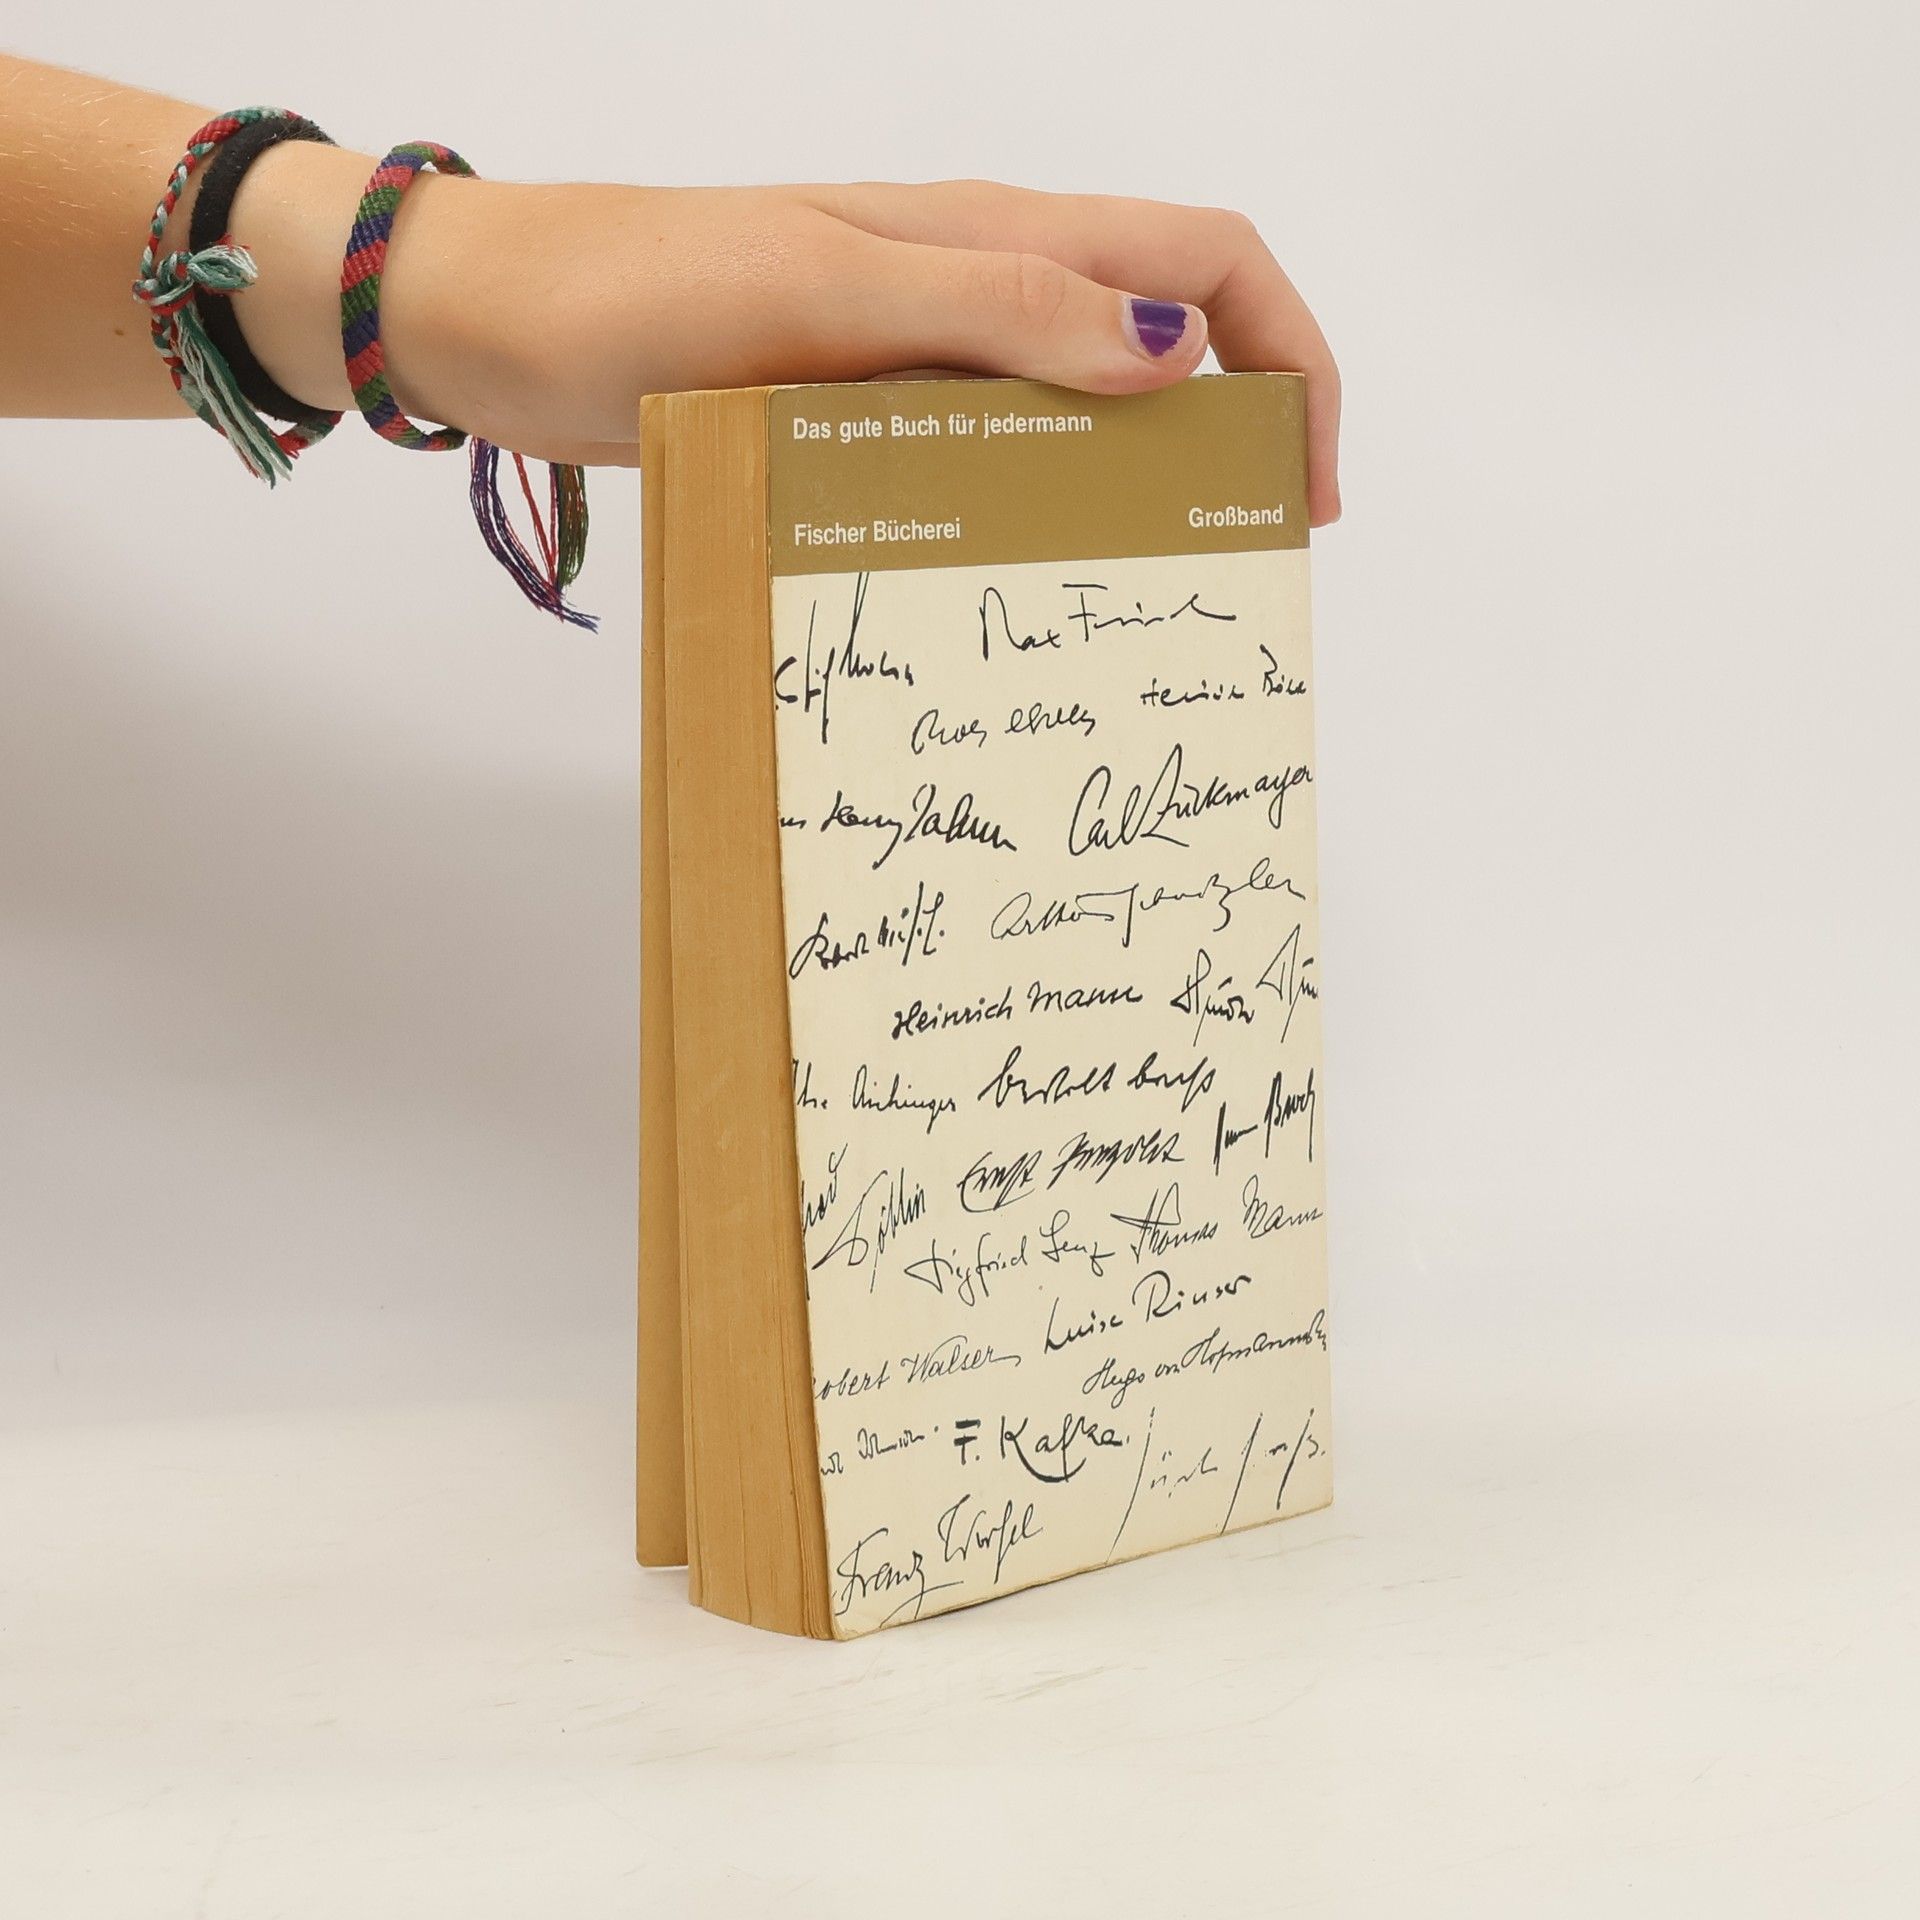 Das gute Buch für jedermann
Fischer Bücherei Großband
Max Frisch
Heinrich Böll
Henny Jahnn Carl Zuckmayer
Robert Musil. Arthur Schnitzler
Heinrich Mann Günter
Ilse Aichinger bertolt brecht
Döblin Ernst Penzoldt Broch
Siegfried Lenz Thomas Mann
Luise Rinser
obert Walser
Hugo von Hofmannsthal
F. Kafka.
Franz Werfel